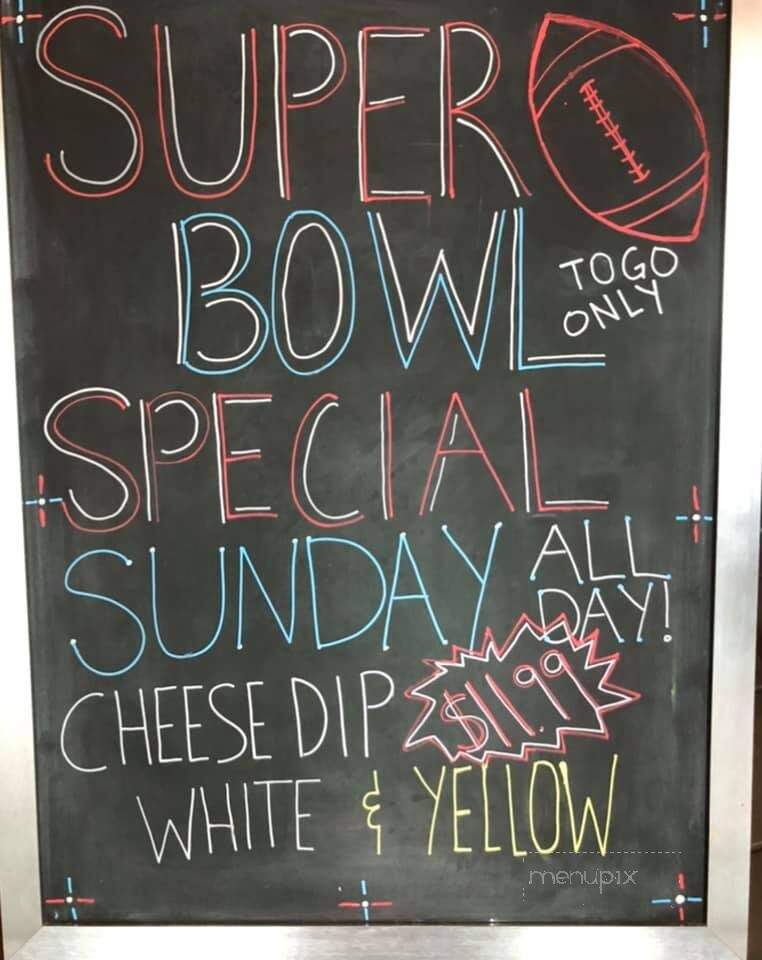 SUPER
BOWL
TO GO
ONLY
SPECIAL
SUNDAY
ALL
DAY!
CHEESE DIP
$11.99
WHITE & YELLOW
menupix